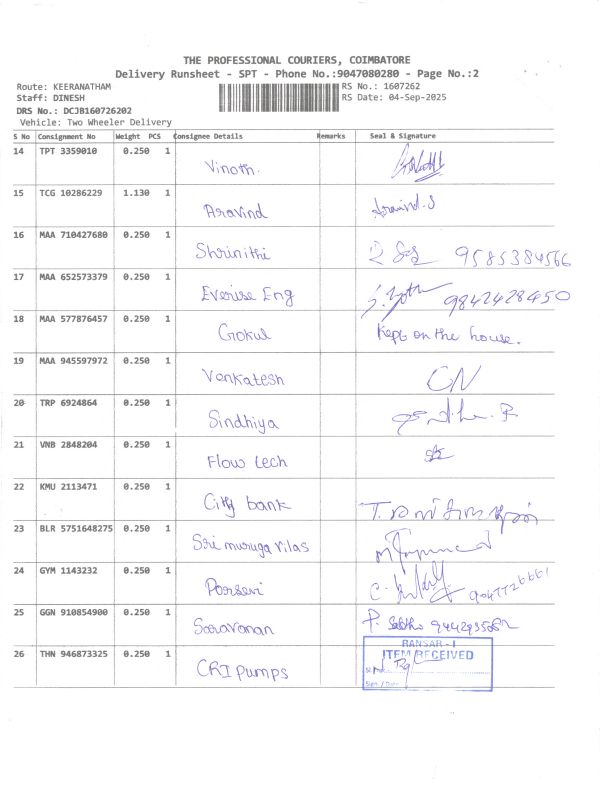 THE PROFESSIONAL COURIERS, COIMBATORE
Delivery Runsheet - SPT - Phone No.:9047080280 - Page No.:2
Route: KEERANATHAM RS No.: 1607262
Staff: DINESH RS Date: 04-Sep-2025
DRS No.: DCJB160726202
Vehicle: Two Wheeler Delivery
S No Consignment No Weight PCS Consignee Details Remarks Seal & Signature
14 TPT 3359010 0.250 1 Vinoth.
15 TCG 10286229 1.130 1 Aravind Aravind.S
16 MAA 710427680 0.250 1 Shrinithi 9585384566
17 MAA 652573379 0.250 1 Everise Eng 9842428450
18 MAA 577876457 0.250 1 Gokul Kept on the house.
19 MAA 945597972 0.250 1 Venkatesh
20 TRP 6924864 0.250 1 Sindhiya
21 VNB 2848204 0.250 1 Flow tech
22 KMU 2113471 0.250 1 City bank
23 BLR 5751648275 0.250 1 Sri muruga vilas
24 GYM 1143232 0.250 1 9047726661
25 GGN 910854900 0.250 1 Saravanan
26 THN 946873325 0.250 1 CRI pumps
RANSAR - I
ITEM RECEIVED
Sign. / Date